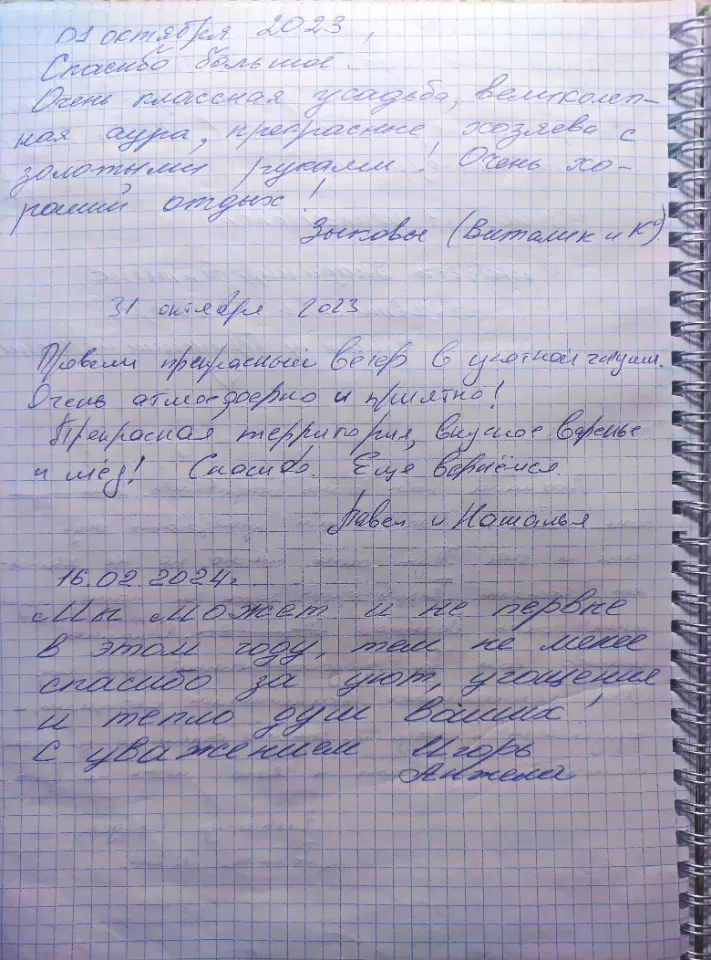 01 октября 2023,
Спасибо большое.
Очень классная усадьба, великолеп-
ная аура, прекрасные хозяева с
золотыми руками! Очень хо-
роший отдых!
Зыковы (Виталик и К°)
31 октября 2023
Провели прекрасный вечер в уютной
Очень атмосферно и приятно!
Прекрасная территория, вкусное варенье
и мед! Спасибо. Еще вернёмся.
Павел и Наталья
16.02.2024г.
Мы может и не первые
в этом году, тем не менее
спасибо за уют, угощения
и тепло душ Ваших!
С уважением Игорь
Анжела